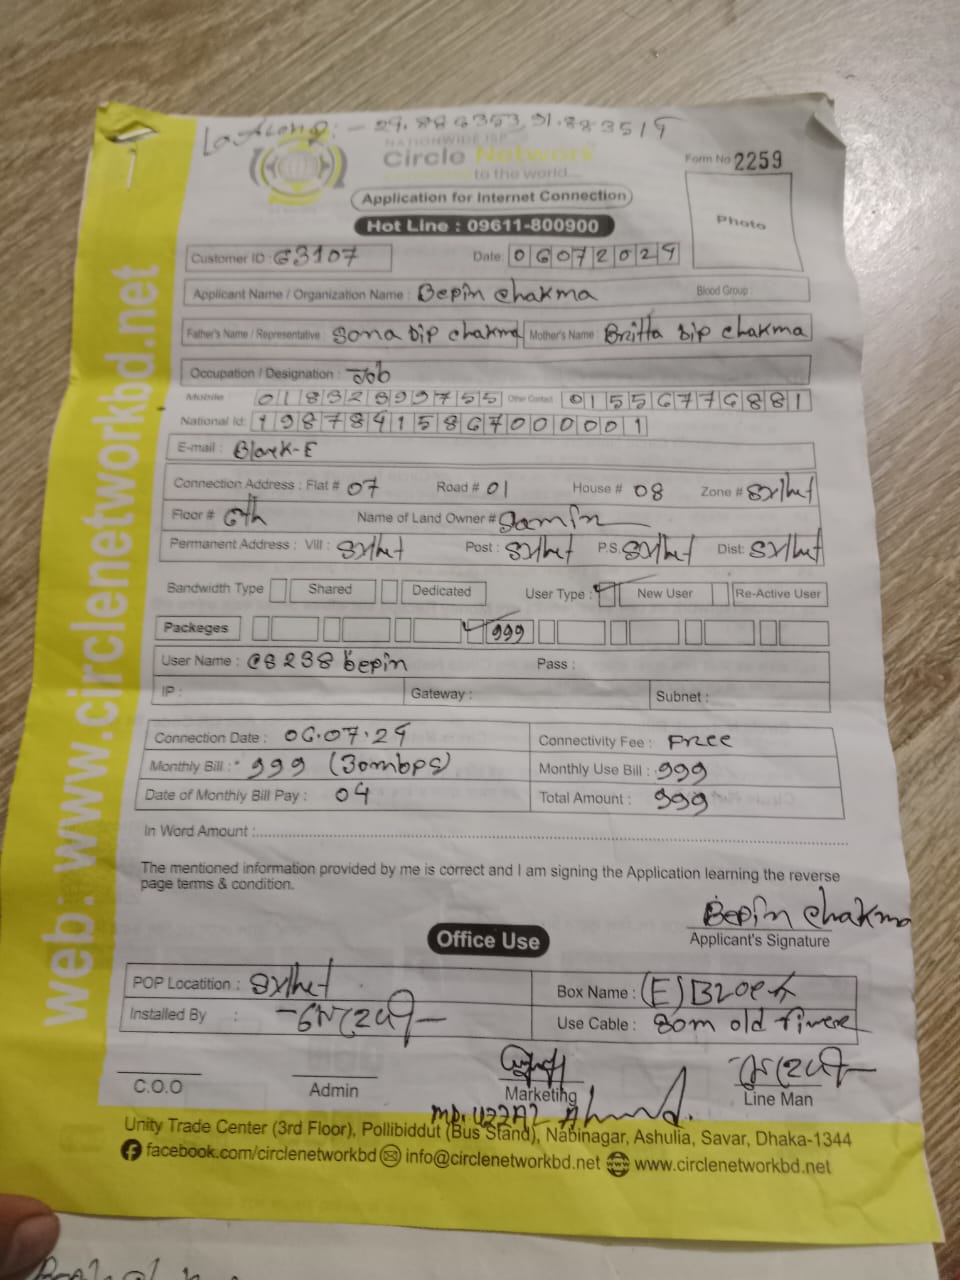 NATIONWIDE ISP
Circle Network
to the world...
Form No 2259
Application for Internet Connection
Photo
Hot Line : 09611-800900
Customer ID : 63107 Date: 06072024
Applicant Name / Organization Name : Bepin chakma Blood Group :
Father's Name / Representative : Sona Dip chakma Mother's Name : Britta Dip chakma
Occupation / Designation : Job
Mobile : 01892899755 Other Contact 01556776881
National Id: 19878415867000001
E-mail : Block-E
Connection Address : Flat # 07 Road # 01 House # 08 Zone # Sylhet
Floor # 6th Name of Land Owner # Samin
Permanent Address : Vill : Sylhet Post : Sylhet P.S. Sylhet Dist: Sylhet
Bandwidth Type Shared Dedicated User Type : New User Re-Active User
Packeges 999
User Name : C8238 bepin Pass :
IP : Gateway : Subnet :
Connection Date : 06.07.24 Connectivity Fee : Free
Monthly Bill : 999 (30mbps) Monthly Use Bill : 999
Date of Monthly Bill Pay : 04 Total Amount : 999
In Word Amount :
The mentioned information provided by me is correct and I am signing the Application learning the reverse
page terms & condition.
Bepin chakma
Applicant's Signature
Office Use
POP Locatition : Sylhet Box Name : (E) Block
Installed By : Use Cable : 80m old
C.O.O Admin Marketing Line Man
MD. UZZAL Ahmed.
Unity Trade Center (3rd Floor), Pollibiddut (Bus Stand), Nabinagar, Ashulia, Savar, Dhaka-1344
facebook.com/circlenetworkbd info@circlenetworkbd.net www.circlenetworkbd.net
web: www.circlenetworkbd.net